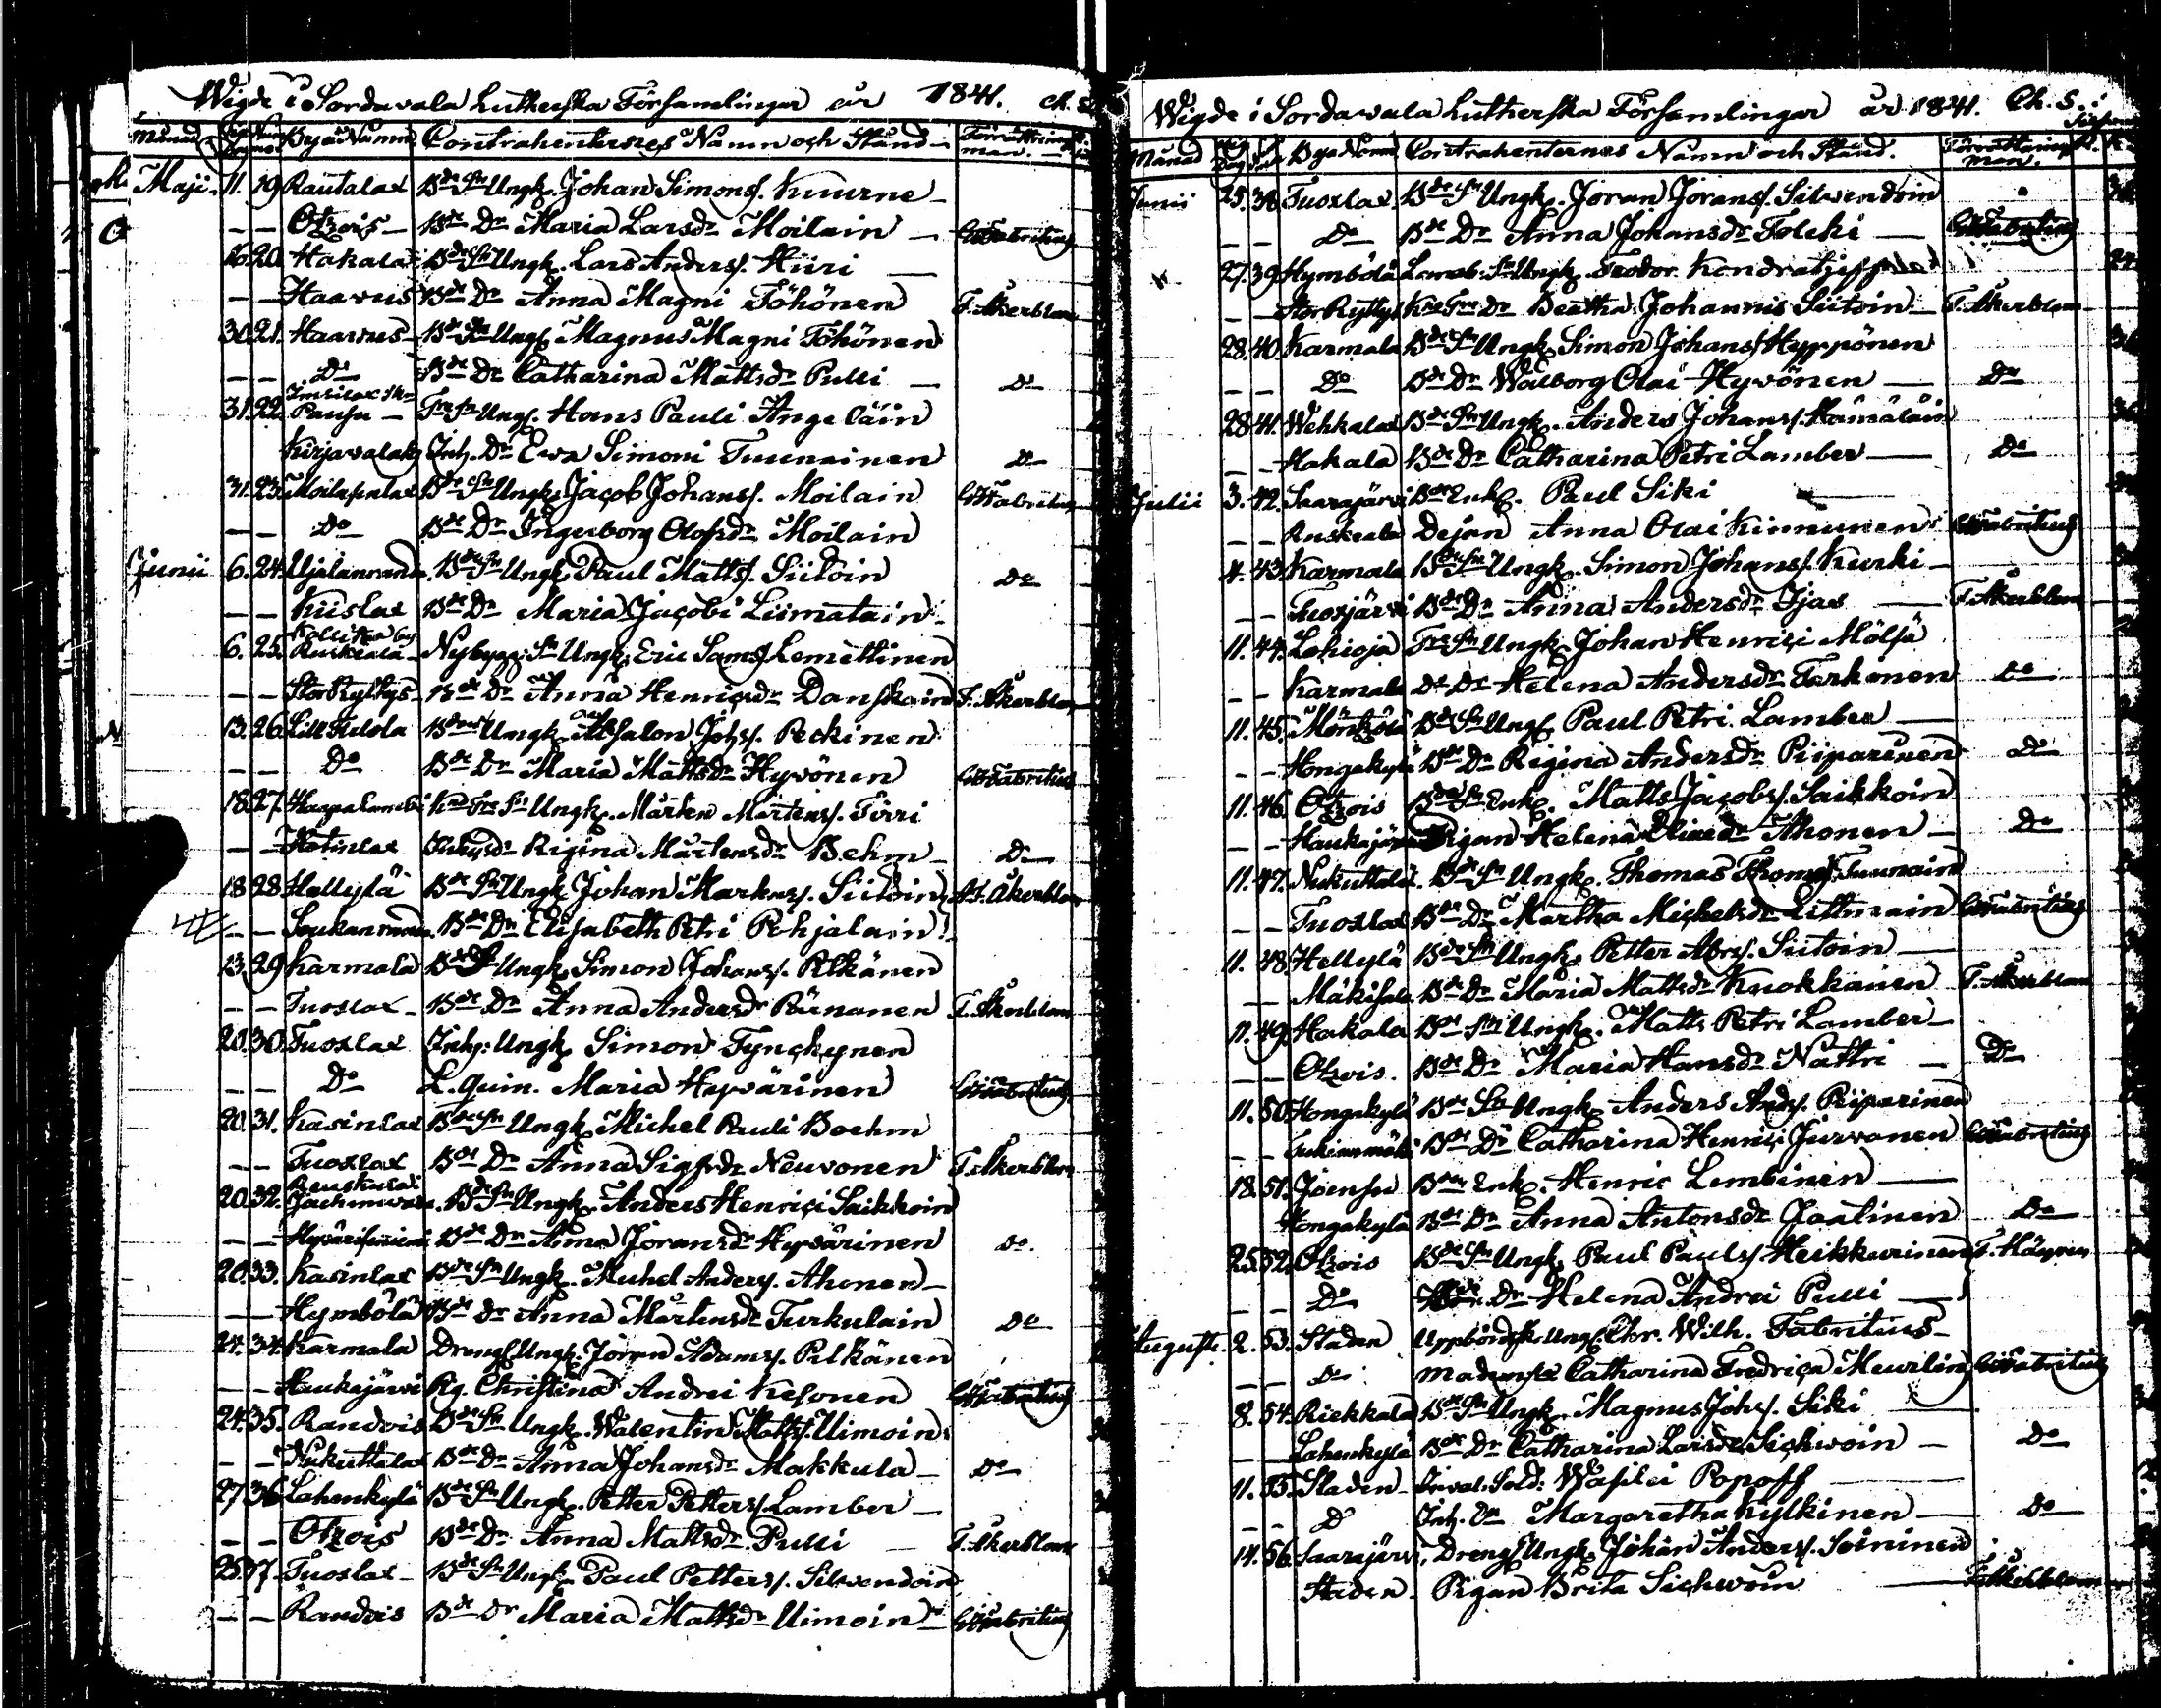 Wigde i Sordavala Lutherska Församlingar år 1841.
Månad Byanamn Contrahenternes Namn och Stånd Förrättningsman.
Maji 11. 19. Rautalax Bde Sn Ungk. Johan Simonsf. Kuurne
— — Otzois — Bde Dr Maria Larsdr Moilain — Fabritius
16. 20. Hakala Bde Sn Ungk. Lars Andersf. Hiiri —
— — Haavus Bde Dr Anna Magni Töhönen F. Åkerblom
30. 21. Haavus Bde Sn Ungk. Magnus Magni Töhönen
— — Do Bde Dr Catharina Mattsdr Pulli — Do
31. 22. Pausu — Fre Sn Ungk. Hans Pauli Angeläin
Kirjavalax Inh. Dr Ewa Simoni Tuunainen Do
31. 23. Bde Sn Ungk. Jacob Johansf. Moilain Fabritius
— — Do Bde Dr Ingeborg Olofsdr Moilain
Junii 6. 24. Bde Sn Ungk. Paul Mattsf. Siitoin Do
— — Kiislax Bde Dr Maria Jacobi Liimatain
6. 25. Ruskeala Nybygg. Sn Ungk. Eric Samf. Lemettinen
— — Stor Ryttys Bde Dr Anna Henricsdr Danskain F. Åkerblom
13. 26. Lill Hulola Ungk. Absalon Johsf. Peckinen
— — Do Bde Dr Maria Mattsdr Hyvönen Fabritius
18. 27. Haapalambi Kne Fre Sn Ungk. Mårten Mårtensf. Tirri
— — Hotinlax Regina Mårtensdr Behm — Do
18. 28. Hellylä Bde Sn Ungk. Johan Markusf. Siitoin Åkerblom
— — Soukanranda Bde Dr Elisabeth Petri Pohjalain
13. 29. Karmala Bde Sn Ungk. Simon Johansf. Pilkänen
— — Tuoslax Bde Dr Anna Andersdr Ränänen F. Åkerblom
20. 30. Tuoslax Inh. Ungk. Simon Tynckynen
— — Do L. Quin. Maria Hyvärinen Fabritius
20. 31. Kasinlax Bde Sn Ungk. Michel Pauli Boehm
— — Tuoslax Bde Dr Anna Sigfrdr Neuvonen F. Åkerblom
20. 32. Bde Sn Ungk. Anders Henrici Saikkoin
— — Bde Dr Anna Joransdr Hyvärinen Do
20. 33. Kasinlax Bde Sn Ungk. Michel Andersf. Ahonen —
— — Hymbölä Bde Dr Anna Mårtensdr Turkulain Do
24. 34. Karmala Drengf. Ungk. Joran Adamsf. Pilkänen
— — Haukajärvi Pig. Christina Andrei Kesonen Fabritius
24. 35. Randois Bde Sn Ungk. Walentin Mattsf. Uimoin
— — Nukuttalax Bde Dr Anna Johansdr Makkula — Do
27. 36. Lahenkylä Bde Sn Ungk. Petter Pettersf. Lamber —
— — Otzois Bde Dr Anna Mattsdr Pulli — F. Åkerblom
25. 37. Tuoslax — Bde Sn Ungk. Paul Pettersf. Silvendoin
— — Randois Bde Dr Maria Mattsdr Uimoin — Fabritius
Wigde i Sordavala Lutherska Församlingar år 1841. Ch. S.
Månad Byanamn Contrahenternes Namn och Stånd. Förrättningsman.
Junii 25. 38. Tuoxlax Bde Sn Ungk. Joran Joransf. Silvendoin
— — Do Bde Dr Anna Johansdr Toleki — Fabritius
27. 39. Hymbölä Sn Ungk. Feodor Kondratjeff
— — Stor Ryttys Kne Fre Dr Beatha Johannis Siitoin — F. Åkerblom
28. 40. Karmala Bde Sn Ungk. Simon Johansf. Hyppönen
— — Do Bde Dr Walborg Olai Hyvönen — Do
28. 41. Wehkalax Bde Sn Ungk. Anders Johansf. Hämäläin
— — Hakala Bde Dr Catharina Petri Lamber — Do
Julii 3. 42. Saarajärvi Bde Enkl. Paul Siki
— — Ruskeala Dejan Anna Olai Kinnunen Fabritius
4. 43. Karmala Bde Sn Ungk. Simon Johansf. Kurki —
— — Tuosjärvi Bde Dr Anna Andersdr Ijas — F. Åkerblom
11. 44. Lahioja Fre Sn Ungk. Johan Henrici Mölsä
— — Karmala Do Dr Helena Andersdr Tarkonen Do
11. 45. Möntzölä Bde Sn Ungk. Paul Petri Lamber —
— — Hongakylä Bde Dr Regina Andersdr Piiparinen Do
11. 46. Otzois Bde Sn Enkl. Matts Jacobsf. Saikkoin
— — Haukajärvi Pigan Helena Eliaedr Ahonen — Do
11. 47. Nukuttalax Bde Sn Ungk. Thomas Thomasf. Tuunain
— — Tuoslax Bde Dr Martha Michelsdr Littmain Fabritius
11. 48. Hellylä Bde Sn Ungk. Petter Abrsf. Siitoin —
— — Mäkisalo Bde Dr Maria Mattsdr Knokkanen F. Åkerblom
11. 49. Hakala Bde Sn Ungk. Matts Petri Lamber —
— — Otzois. Bde Dr Maria Hansdr Nattri — Do
11. 50. Hongakylä Bde Sn Ungk. Anders Andsf. Piiparinen
— — Tukianmäki Bde Dr Catharina Henrici Jurvanen Fabritius
18. 51. Joensu Bde Enkl. Henric Lembinen —
Hongakylä Bde Dr Anna Antonsdr Jaatinen Do
25. 52. Otzois Bde Sn Ungk. Paul Paulsf. Heikkurinen
— — Do Dr Helena Andrei Pulli —
Augusti. 2. 53. Staden Ungk. Chr. Wilh. Fabritius —
— — Do Catharina Fredrica Meurlin Fabritius
8. 54. Riekkala Bde Sn Ungk. Magnus Johsf. Siki —
Lahenkylä Bde Dr Catharina Larsdr Sichwoin — Do
11. 55. Staden — Sold. Wasilei Popoff —
— — Do Inh. Dr Margaretha Kylkinen — Do
14. 56. Saarajärvi, Drengf. Ungk. Johan Andersf. Soininen
Staden. Pigan Brita Sichwoin — F. Åkerblom